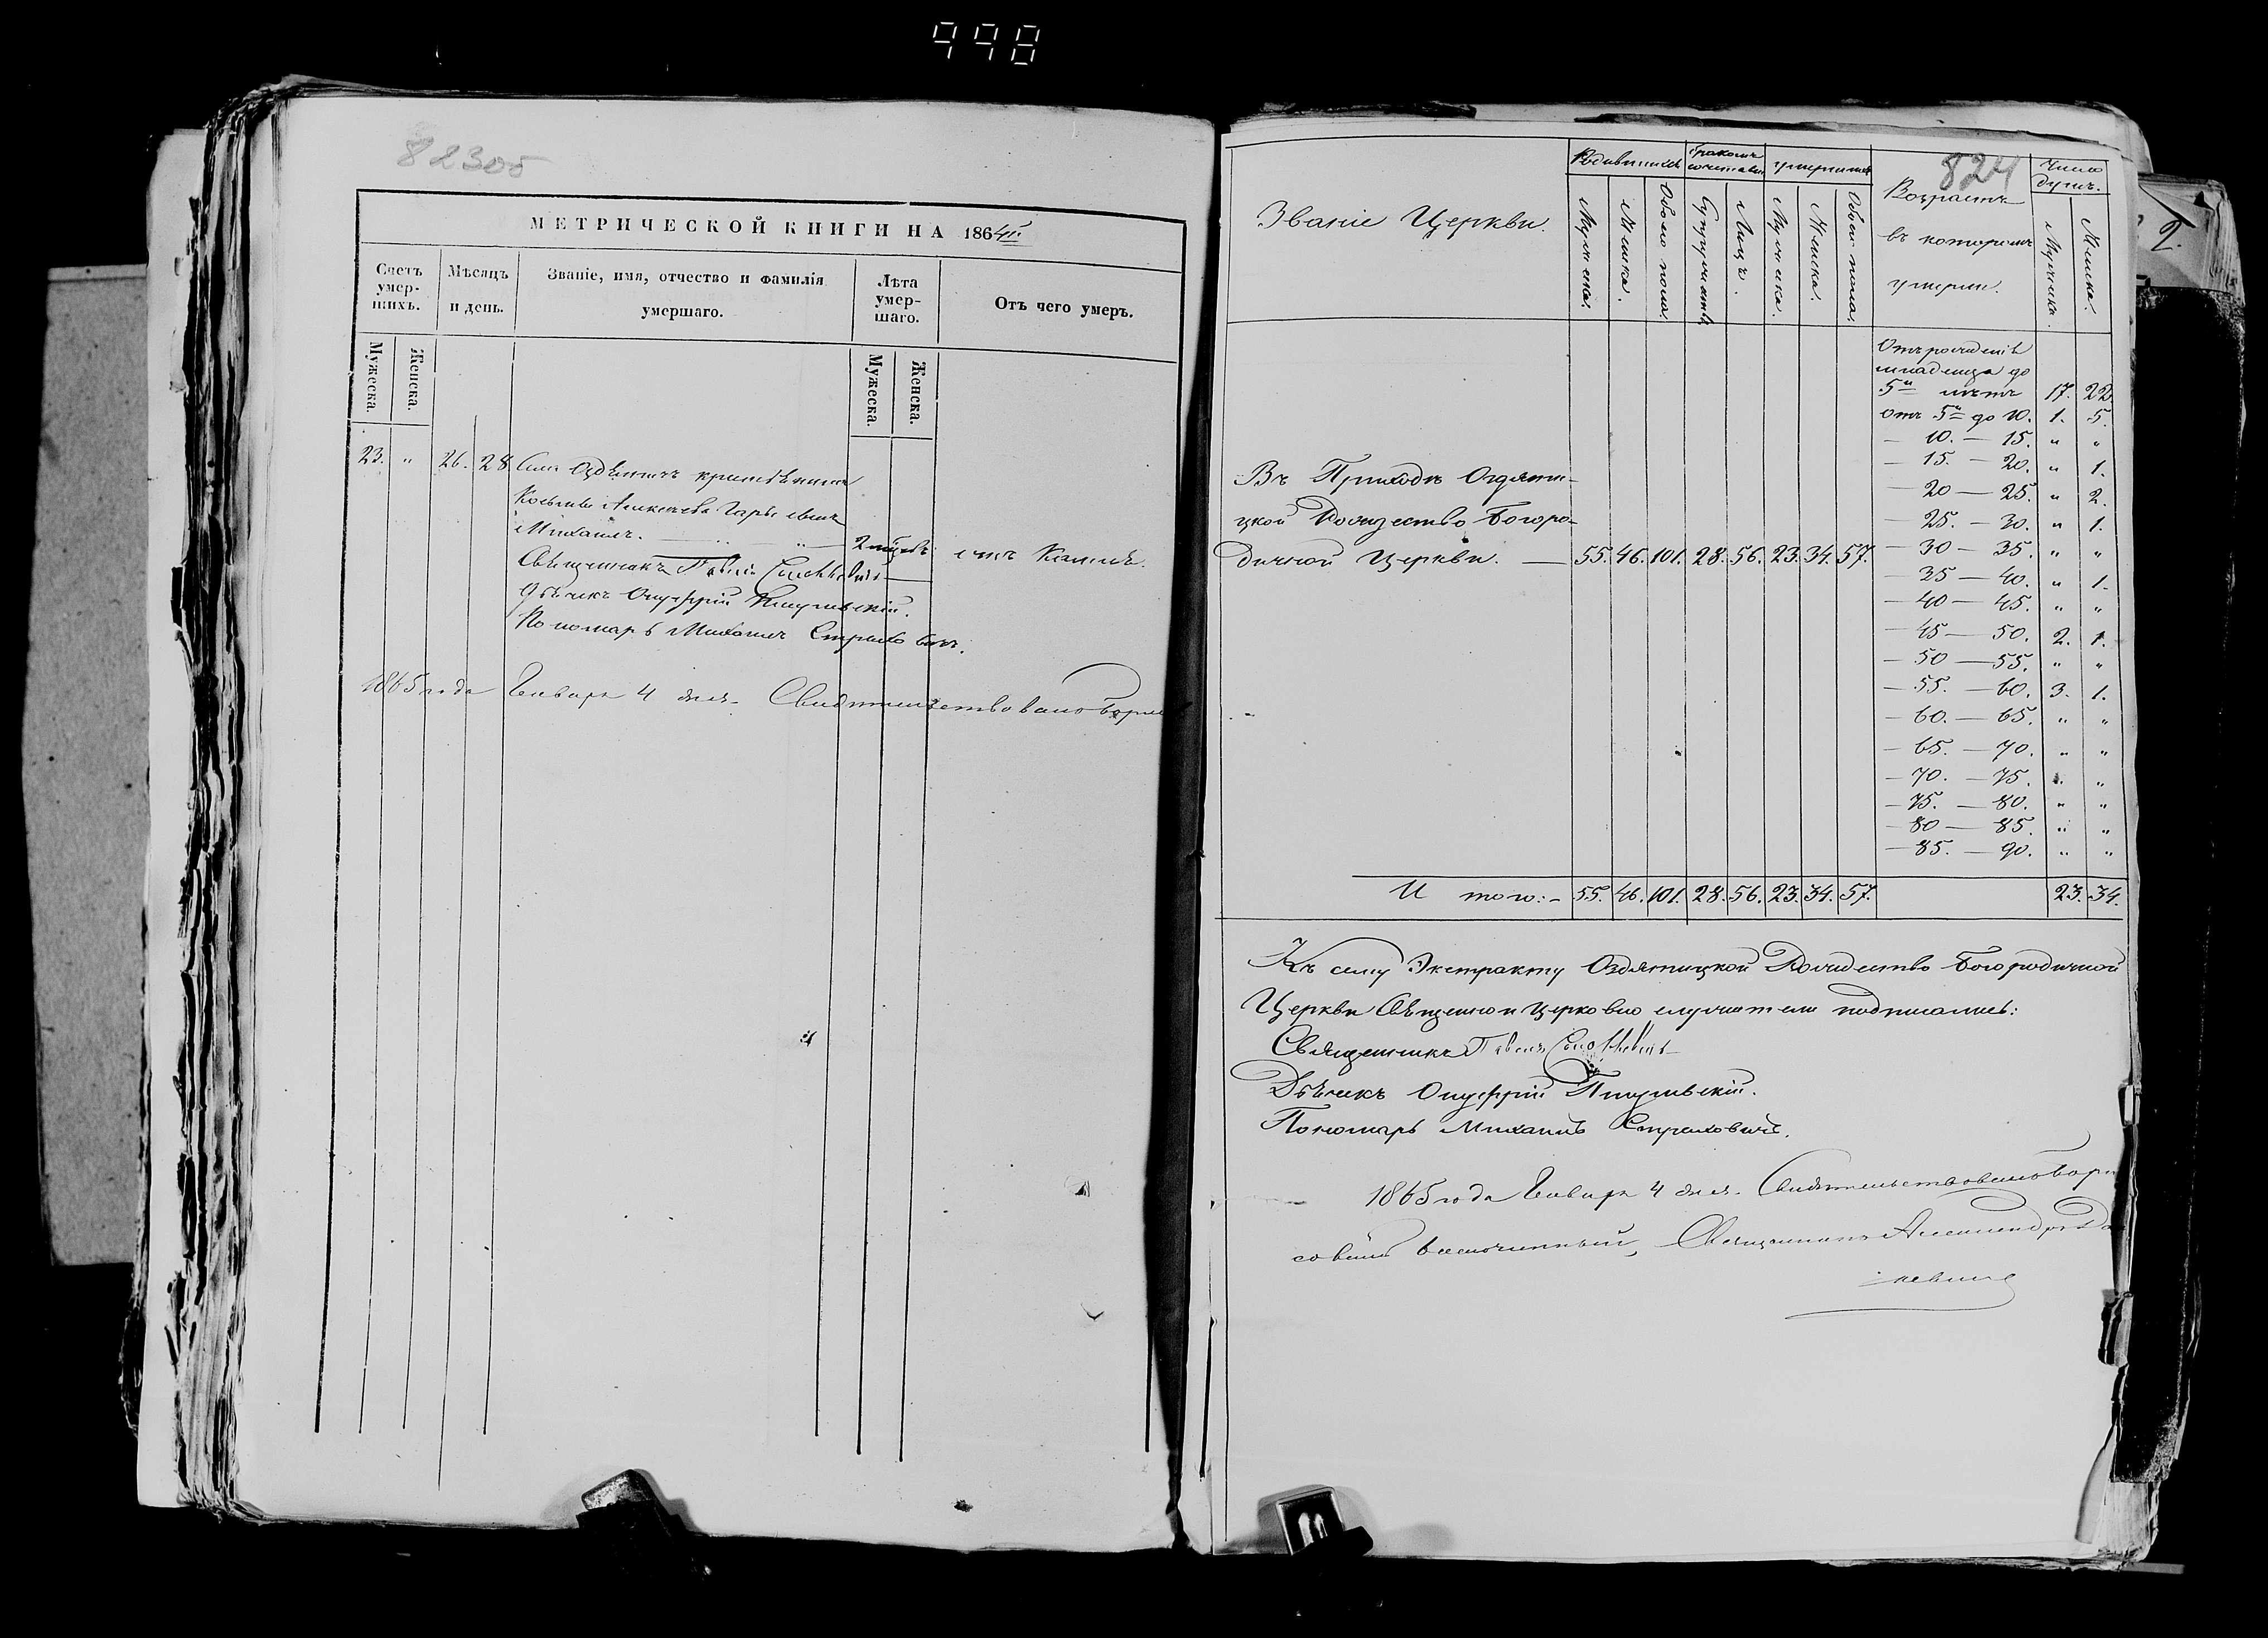 998
82305
МЕТРИЧЕСКОЙ КНИГИ НА 1864й.
Счетъ умер-шихъ.
Мѣсяцъ и день.
Званіе, имя, отчество и фамилія умершаго.
Лѣта умер-шаго.
Отъ чего умеръ.
Мужеска.
Женска.
Мужеска.
Женска.
23. " 26. 28
крестьянина
Михаилъ. 2 отъ Кашля.
Священникъ Павелъ
Дьячекъ Онуфрій
Пономарь Михаилъ Страховичъ.
1865 года Января 4 дня. Свидѣтельствовалъ Бори
824
Званіе Церкви.
Родившихся
Бракомъ сочетавш.
умершихъ
Возрастъ въ которомъ умерли.
Число душъ.
Мужеска.
Женска.
Обоего пола.
Супружествъ.
Лицъ.
Мужеска.
Женска.
Обоего пола.
Мужеска.
Женска.
Отъ рожденія
младенца до
5и лѣтъ 17. 22.
отъ 5и до 10. 1. 5.
— 10. — 15. " "
— 15. — 20. " 1.
— 20 — 25. " 2.
— 25. — 30. " 1.
— 30 — 35. " "
— 35 — 40. " 1.
— 40 — 45. " "
— 45 — 50. 2. 1.
— 50 — 55. " "
— 55. — 60. 3. 1.
— 60. — 65. " "
— 65. — 70. " "
— 70. — 75. " "
— 75. — 80. " "
— 80 — 85. " "
— 85. — 90. " "
Въ Приходѣ Оздяти-
цкой Рождество Богоро-
дичной Церкви. — 55. 46. 101. 28. 56. 23. 34. 57.
И того:- 55. 46. 101. 28. 56. 23. 34. 57. 23. 34.
Къ сему Экстракту Оздятицкой Рождество Богородичной
Церкви Священно и церковно служители подписались:
Священникъ Павелъ
Дьячекъ Онуфрій
Пономарь Михаилъ Страховичъ.
1865 года Января 4 дня. Свидѣтельствовалъ Бори
совскій Благочинный, Священникъ Александръ